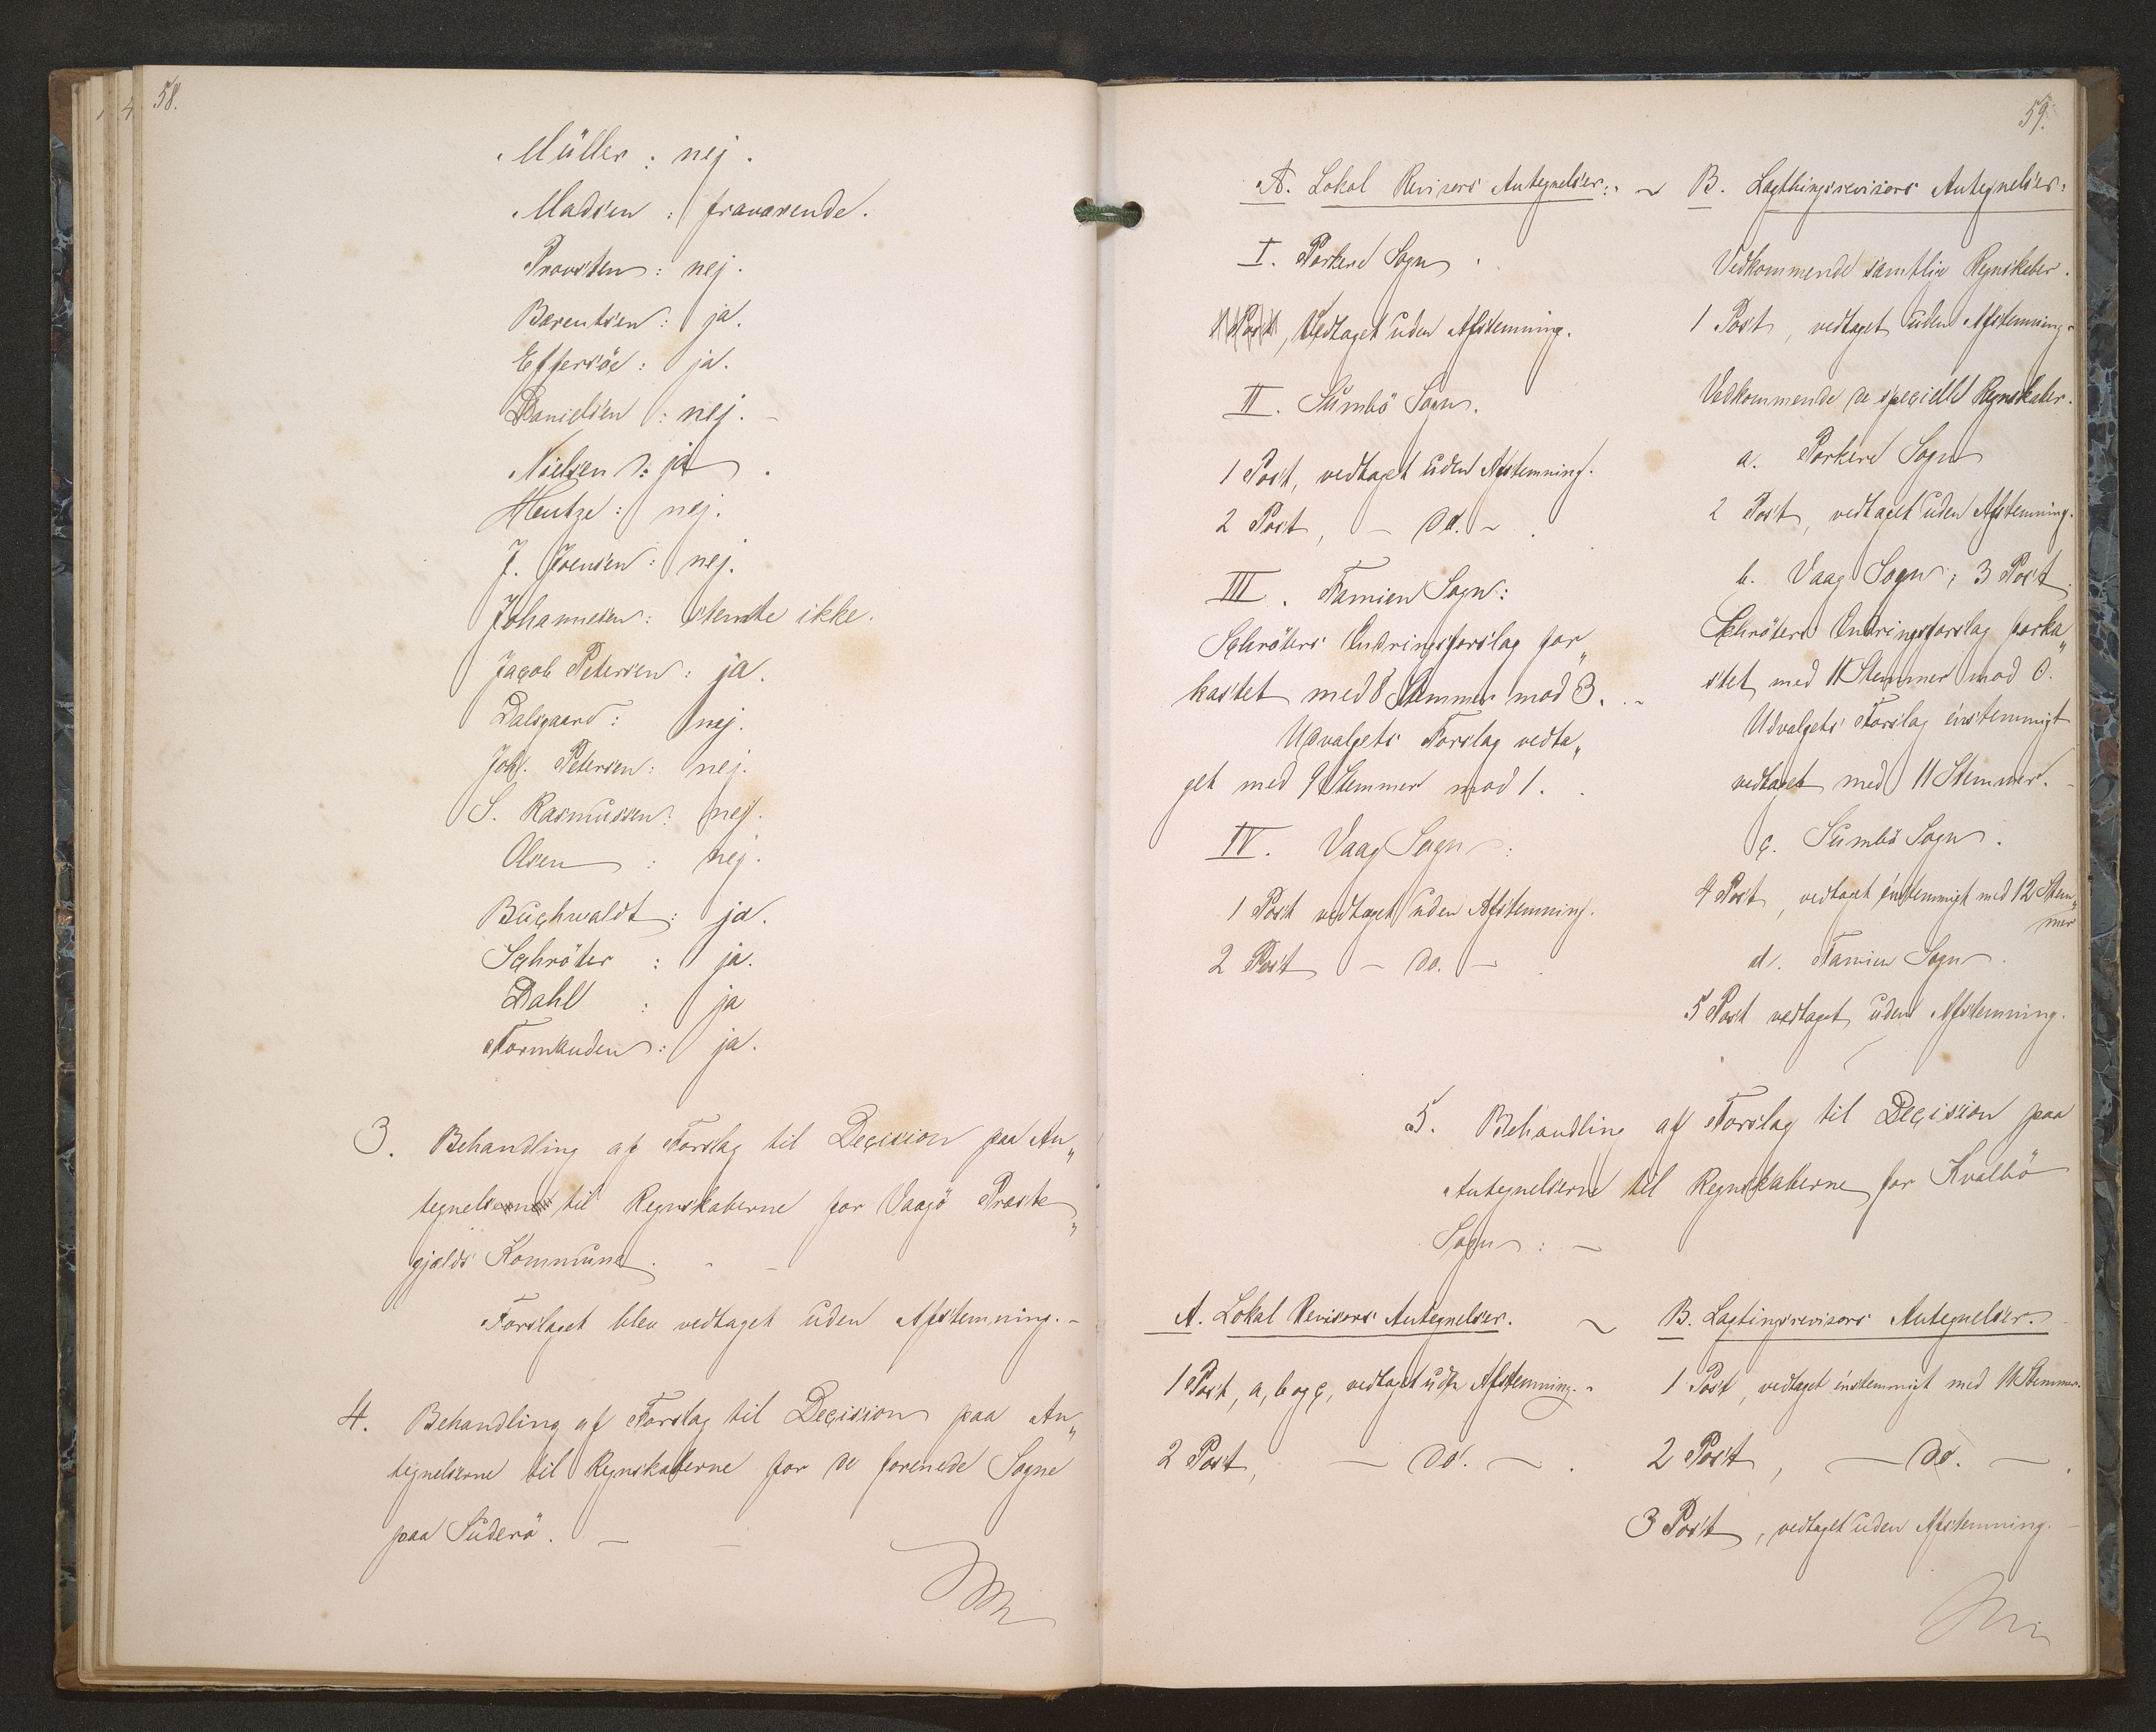 58.
Müller : nej.
Madsen : fraværende.
Provsten : nej.
Bærentsen : ja.
Effersöe : ja.
Danielsen : nej. -
Nielsen : ja.
Hentze : nej.
J. Joensen : nej.
Johannesen : stemte ikke.
Jacob Petersen : ja.
Dalsgaard : nej.
Joh. Petersen : nej.
S. Rasmussen : nej.
Olsen : nej.
Buchwaldt : ja.
Schröter : ja.
Dahl : ja
Formanden : ja.
3. Behandling af Forslag til Decision paa An„
tegnelserne til Regnskaberne for Vaagö Præste„
gjælds Kommune. -
Forslaget blev vedtaget uden Afstemning. -
4. Behandling af Forslag til Decision paa An„
tegnelserne til Regnskaberne for de forenede Sogne
paa Suderö. -
59.
A. Lokal Revisors Antegnelser: ~
I. Porkere Sogn.
1 Post, Vedtaget uden Afstemning.
II. Sumbö Sogn.
1 Post, vedtaget uden Afstemning.
2 Post, - do. - .
III. Famien Sogn:
Schröters Ændringsforslag for„
kastet med 8 Stemmer mod 3. -
Udvalgets Forslag vedta„
get med 9 Stemmer mod 1.
IV. Vaag Sogn:
1 Post vedtaget uden Afstemning.
2 Post - do. -
B. Lagthingsrevisors Antegnelser:
Vedkommende samtlie Regnskaber.
1 Post, vedtaget uden Afstemning.
Vedkommende de specielle Regnskaber.
a. Porkere Sogn
2 Post, vedtaget uden Afstemning.
b. Vaag Sogn; 3 Post.
Schröters Ændringsforslag forka„
stet med 11 Stemmer mod 0.
Udvalgets Forslag enstemmigt
vedtaget med 11 Stemmer. -
c. Sumbö Sogn.
4 Post, vedtaget enstemmigt med 12 Stem„
mer
d. Famien Sogn.
5 Post vedtaget uden Afstemning.
5. Behandling af Forslag til Decision paa
Antegnelserne til Regnskaberne for Kvalbö
Sogn: -
A. Lokal Revisors Antegnelser. ~
1 Post, a, b og c, vedtaget uden Afstemning. -
2 Post, - do. - .
B. Lagtingsrevisors Antegnelser.
1 Post, vedtaget enstemmigt med 11 Stemmer.
2 Post, - do. - .
3 Post, vedtaget uden Afstemning. -